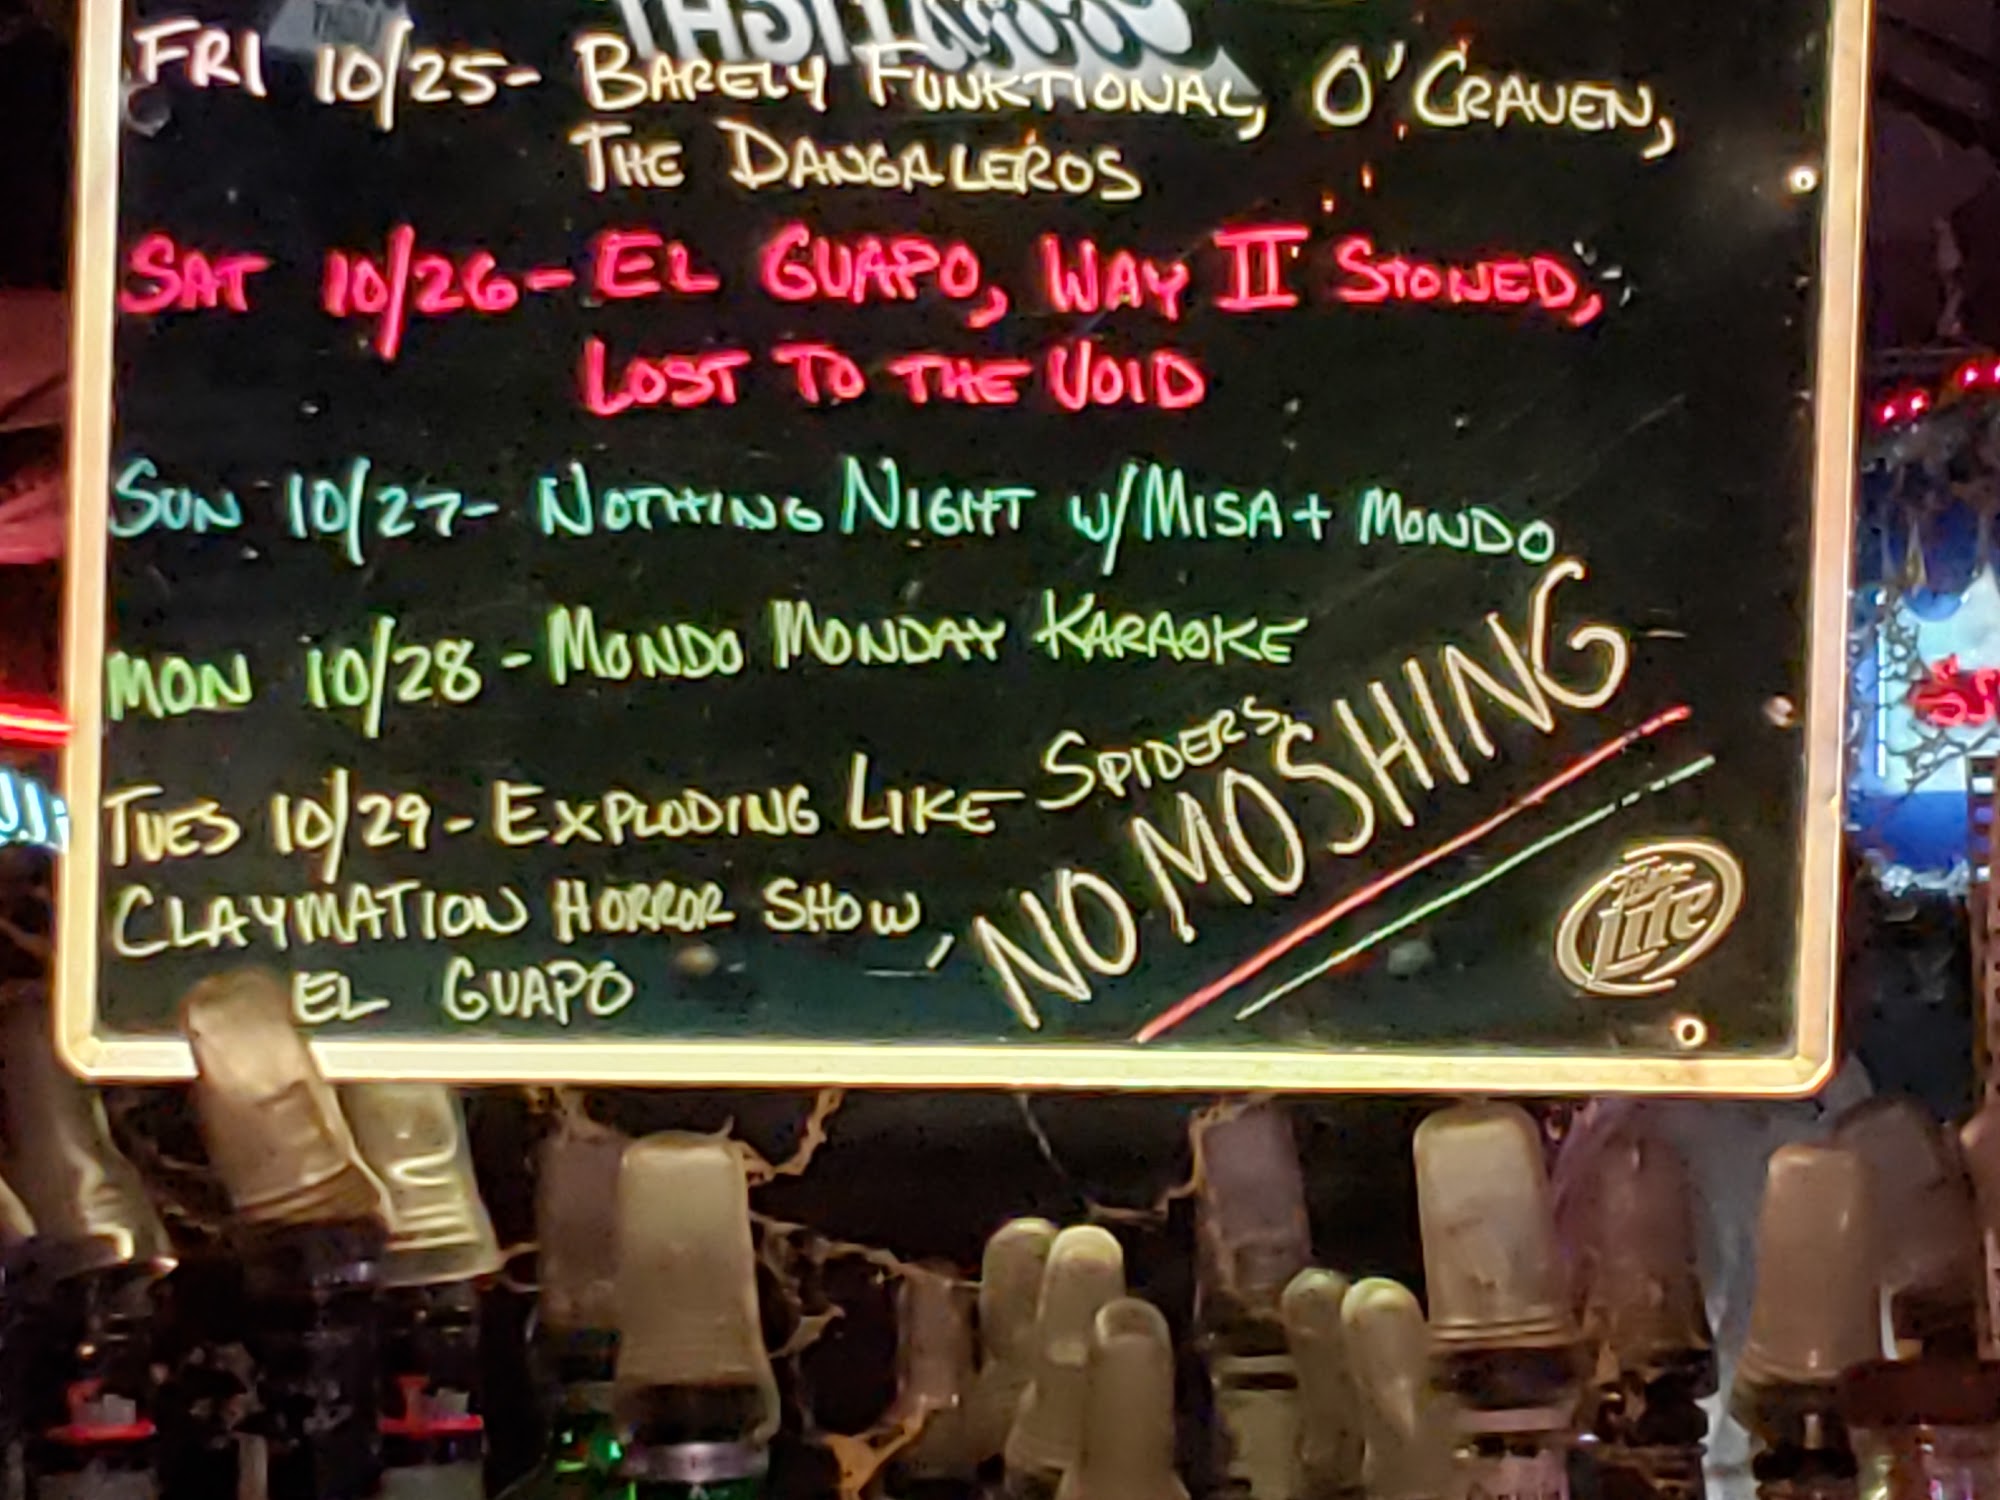 FRI 10/25- BARELY FUNKTIONAL, O'CRAVEN,
THE DANGALEROS
SAT 10/26- EL GUAPO, WAY II STONED,
LOST TO THE VOID
SUN 10/27- NOTHING NIGHT W/MISA + MONDO
MON 10/28 - MONDO MONDAY KARAOKE
TUES 10/29 - EXPLODING LIKE SPIDERS,
CLAYMATION HORROR SHOW,
EL GUAPO
NO MOSHING
Lite